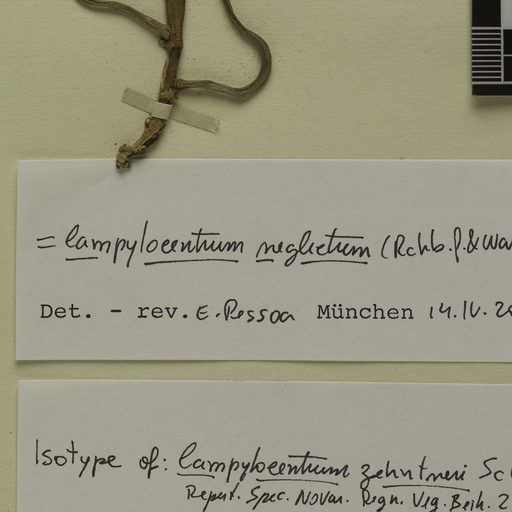 = Campylocentrum neglectum (Rchb.f. & Wa
Det. - rev. E. Pessoa München 14.IV.20
Isotype of: Campylocentrum zehntneri Sc
Repert. Spec. Novar. Regn. Veg. Beih. 2